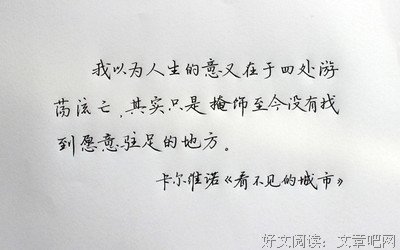 我以为人生的意义在于四处游
荡流亡，其实只是掩饰至今没有找
到愿意驻足的地方。
卡尔维诺《看不见的城市》
好文阅读：文章吧网